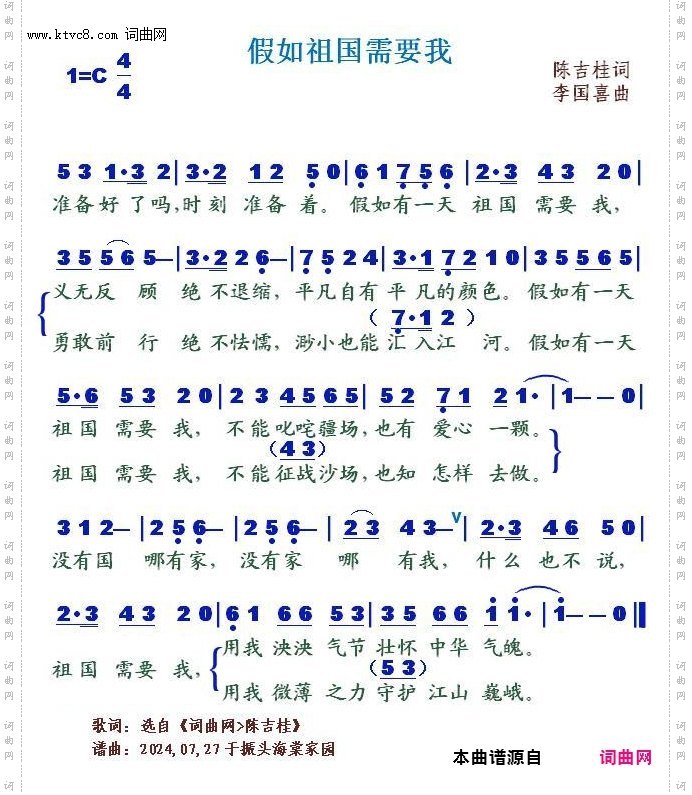 www.ktvc8.com 词曲网
假如祖国需要我
1=C 4/4
陈吉桂词
李国喜曲
5 3 1·3 2|3·2 1 2 5 0|6 1 7 5 6|2·3 4 3 2 0|
准备好了吗,时刻 准备 着。假如有一天 祖国 需要 我,
3 5 5 6 5—|3·2 2 6—|7 5 2 4|3·1 7 2 1 0|3 5 5 6 5|
义无反 顾 绝 不退缩, 平凡自有 平 凡的颜色。假如有一天
( 7·1 2 )
勇敢前 行 绝 不怯懦, 渺小也能 汇 入江 河。假如有一天
5·6 5 3 2 0|2 3 4 5 6 5|5 2 7 1 2 1·|1— — 0|
祖国 需要 我, 不能 叱咤疆场,也有 爱心 一颗。
(4 3)
祖国 需要 我, 不能征战沙场,也知 怎样 去做。
3 1 2—|2 5 6—|2 5 6—|2 3 4 3—V|2·3 4 6 5 0|
没有国 哪有家, 没有家 哪 有我, 什么 也不 说,
2·3 4 3 2 0|6 1 6 6 5 3|3 5 6 6 1 1·|1— — 0‖
用我 泱泱 气节 壮怀 中华 气魄。
祖国 需要 我,
(5 3)
用我 微薄 之力 守护 江山 巍峨。
歌词: 选自《词曲网>陈吉桂》
谱曲: 2024,07,27于振头海棠家园
本曲谱源自 词曲网